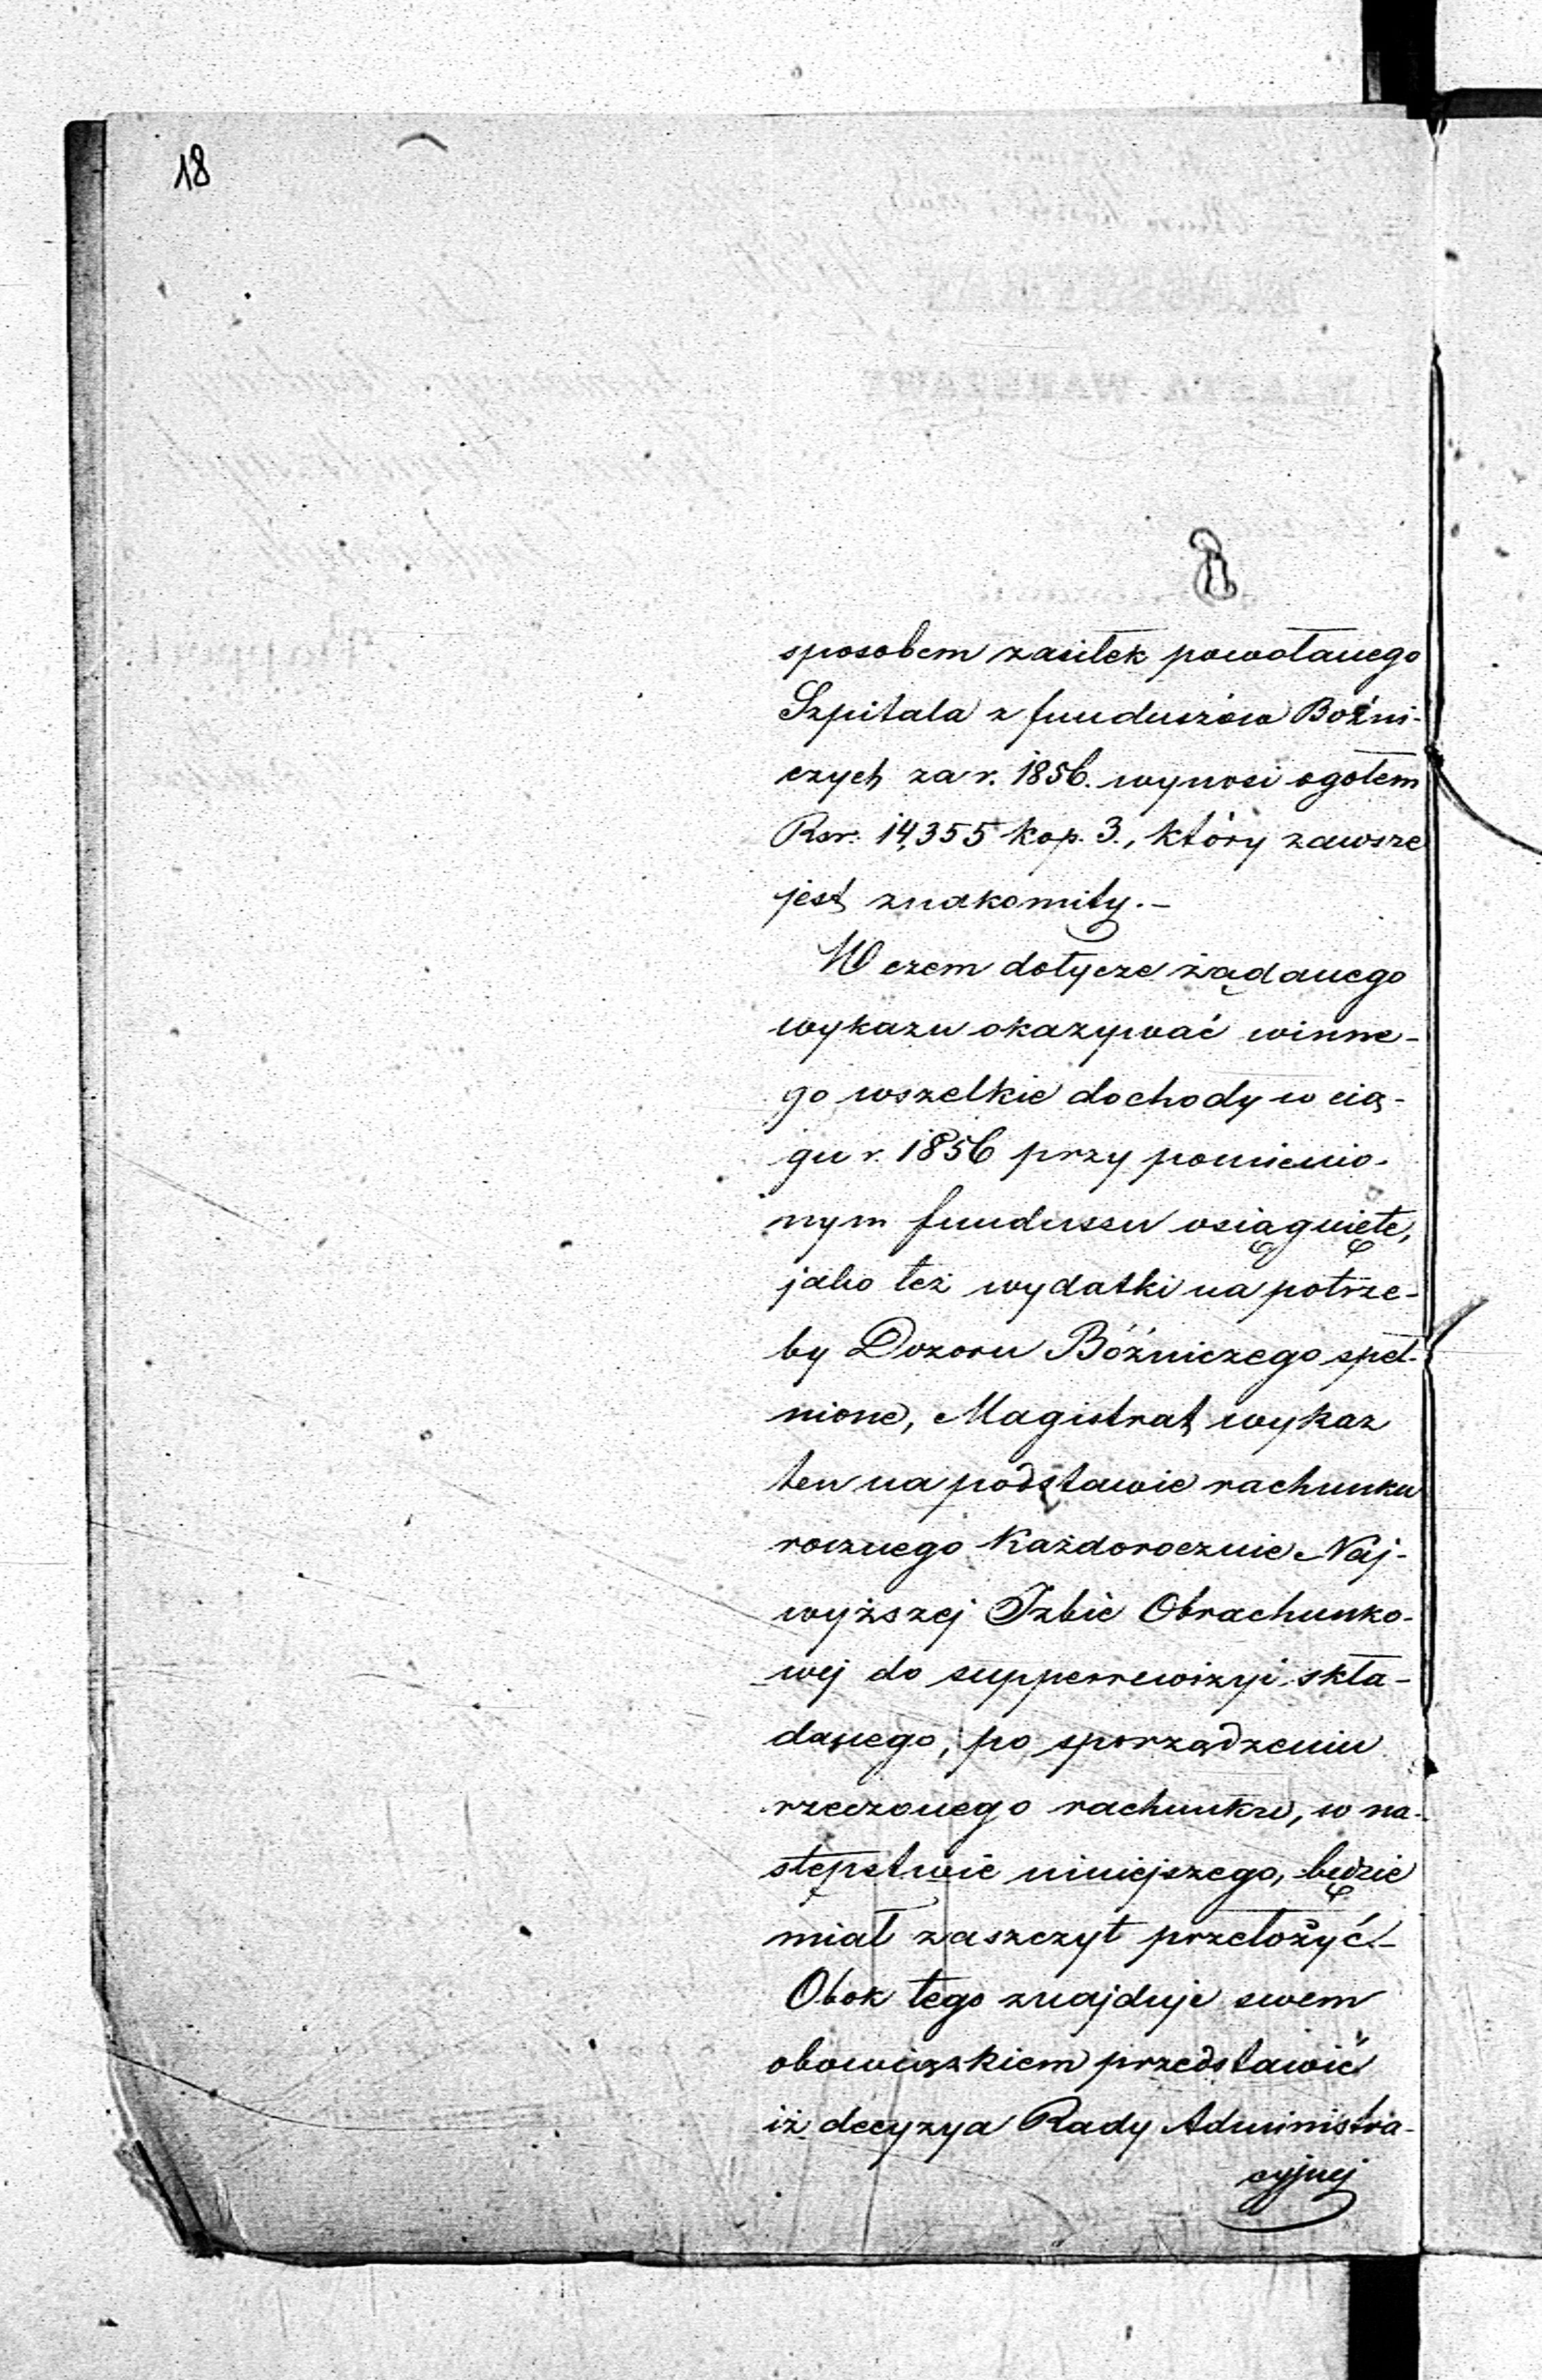 18
sposobem zasiłek powołanego
Szpitala z funduszów Boźni-
czych za r. 1856. wynosi ogołem
Rsr. 14,355 kop. 3., który zawsze
jest znakomity.–
W czem dotycze żądanego
wykazu okazywać winne-
go wszelkie dochody w cią-
gu r. 1856 przy pomienio-
nym fundussu osiągnięte,
jako też wydatki na potrze-
by Dozoru Bóźniczego speł-
nione, Magistrat wykaz
ten na podstawie rachunku
rocznego każdorocznie Naj-
wyższej Izbie Obrachunko-
wej do supperrewizyi skła-
danego, po sporządzeniu
rzeczonego rachunku, w na-
stępstwie niniejszego, będzie
miał zaszczyt przełożyć.–
Obok tego znajduje swem
obowiązkiem przedstawić
iż decyzya Rady Administra-
cyjnej